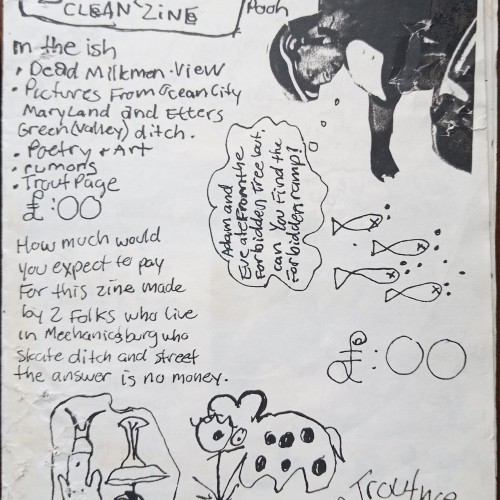 CLEAN ZINE
Pooh
In the ish
• Dead Milkmen-View
• Pictures From Ocean City
Maryland and Etters
Green (Valley) ditch.
• Poetry + Art
• rumors
• Trout Page
:00
How much would
you expect to pay
For this zine made
by 2 Folks who live
in Mechanicsburg who
skate ditch and street
the answer is no money.
Adam and
Eve ate From the
Forbidden Tree but,
can You Find the
Forbidden ramp?
:00
Trout